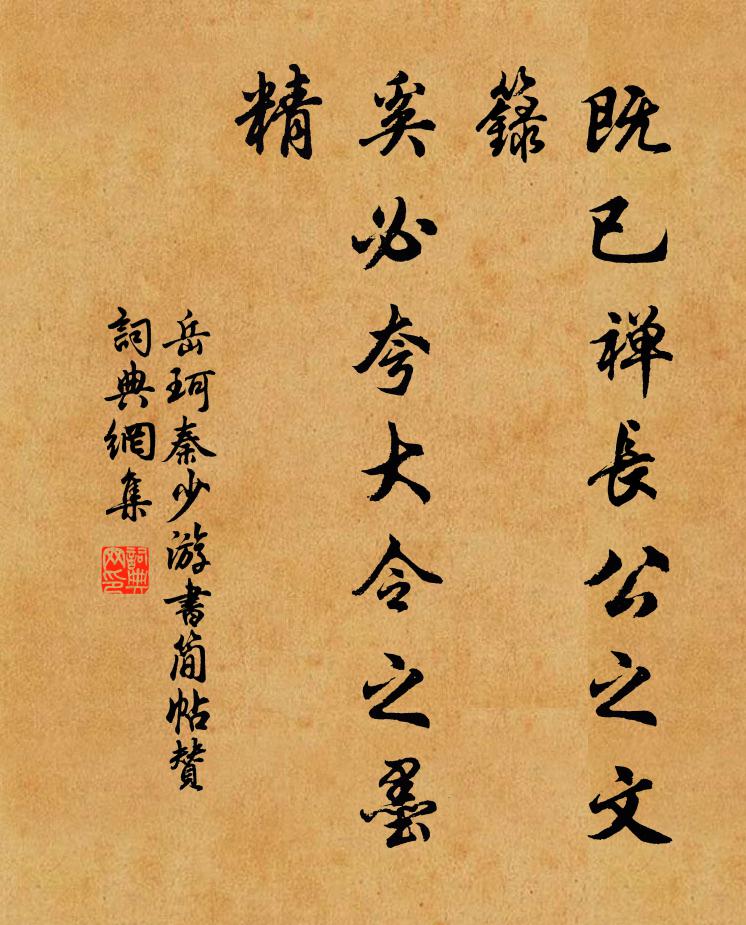 既已禅長公之文
籙
奚必夸大令之墨
精
岳珂秦少游書简帖贊
詞典網集
詞典网印